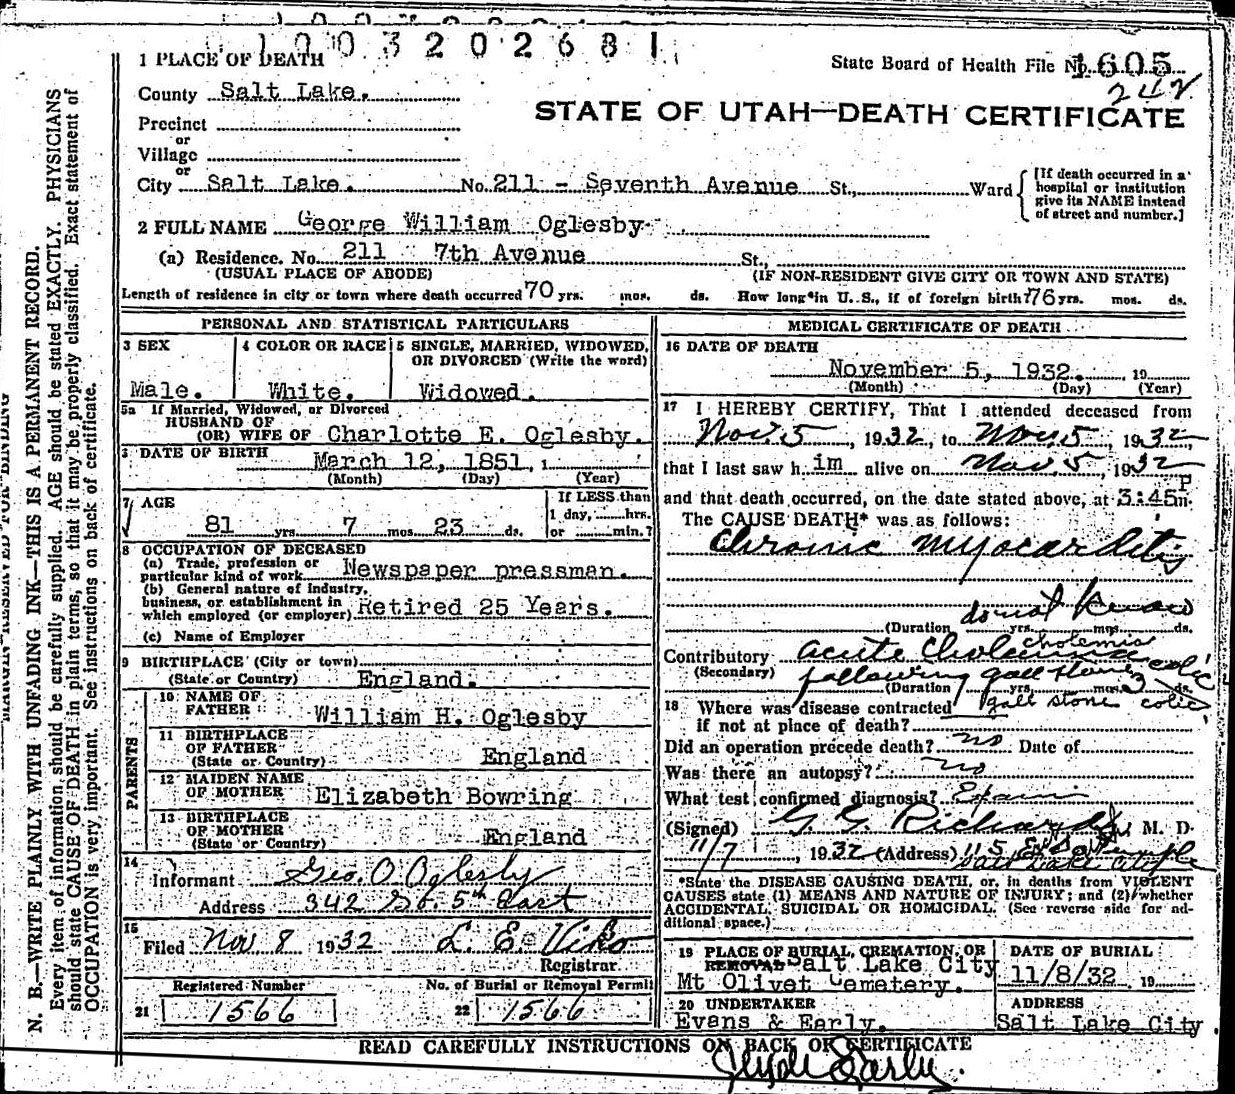 1003202681
1 PLACE OF DEATH
State Board of Health File No. 1605
242
County Salt Lake.
STATE OF UTAH—DEATH CERTIFICATE
Precinct
or
Village
or
City Salt Lake. No. 211 - Seventh Avenue St., Ward
[If death occurred in a hospital or institution give its NAME instead of street and number.]
2 FULL NAME George William Oglesby
(a) Residence. No. 211 7th Avenue St.,
(USUAL PLACE OF ABODE) (IF NON-RESIDENT GIVE CITY OR TOWN AND STATE)
Length of residence in city or town where death occurred 70 yrs. mos. ds. How long in U. S., if of foreign birth? 76 yrs. mos. ds.
PERSONAL AND STATISTICAL PARTICULARS
3 SEX
Male.
4 COLOR OR RACE
White.
5 SINGLE, MARRIED, WIDOWED,
OR DIVORCED (Write the word)
Widowed.
5a If Married, Widowed, or Divorced
HUSBAND OF
(OR) WIFE OF Charlotte E. Oglesby.
DATE OF BIRTH
March 12, 1851, 1
(Month) (Day) (Year)
7 AGE
81 yrs. 7 mos. 23 ds.
If LESS than
1 day, hrs.
or min.?
8 OCCUPATION OF DECEASED
(a) Trade, profession or
particular kind of work Newspaper pressman.
(b) General nature of Industry,
business, or establishment in
which employed (or employer) Retired 25 Years.
(c) Name of Employer
9 BIRTHPLACE (City or town)
(State or Country) England.
PARENTS
10 NAME OF
FATHER William H. Oglesby
11 BIRTHPLACE
OF FATHER
(State or Country) England
12 MAIDEN NAME
OF MOTHER Elizabeth Bowring
13 BIRTHPLACE
OF MOTHER
(State or Country) England
14
Informant Geo. O Oglesby
Address 342 So 5th East
15
Filed Nov 8 1932 L. E. Viko
Registrar.
Registered Number
21 1566
No. of Burial or Removal Permit
22 1566
MEDICAL CERTIFICATE OF DEATH
16 DATE OF DEATH
November 5, 1932. 19
(Month) (Day) (Year)
17 I HEREBY CERTIFY, That I attended deceased from
Nov. 5, 1932, to Nov 5, 1932
that I last saw him alive on Nov 5, 1932
and that death occurred, on the date stated above, at 3:45 P m.
The CAUSE DEATH* was as follows:
Chronic myocarditis
(Duration do not know yrs. mos. ds.
cholemia
Contributory acute
(Secondary) following gall stone colic
(Duration yrs. mos. 3 ds.
18 Where was disease contracted gall stone colic
if not at place of death?
Did an operation precede death? no Date of
Was there an autopsy? no
What test confirmed diagnosis? Exam
(Signed) G. G. Richards, M. D.
11/7, 1932 (Address) Salt Lake City
*State the DISEASE CAUSING DEATH, or, in deaths from VIOLENT
CAUSES state (1) MEANS AND NATURE OF INJURY; and (2) whether
ACCIDENTAL, SUICIDAL OR HOMICIDAL. (See reverse side for ad-
ditional space.)
19 PLACE OF BURIAL, CREMATION, OR
REMOVAL Salt Lake City
Mt Olivet Cemetery.
DATE OF BURIAL
11/8/32 19
20 UNDERTAKER
Evans & Early.
ADDRESS
Salt Lake City
READ CAREFULLY INSTRUCTIONS ON BACK OF CERTIFICATE
Clyde Early.
N. B.—WRITE PLAINLY WITH UNFADING INK—THIS IS A PERMANENT RECORD.
Every item of information should be carefully supplied. AGE should be stated EXACTLY. PHYSICIANS
should state CAUSE OF DEATH in plain terms, so that it may be properly classified. Exact statement of
OCCUPATION is very important. See instructions on back of certificate.